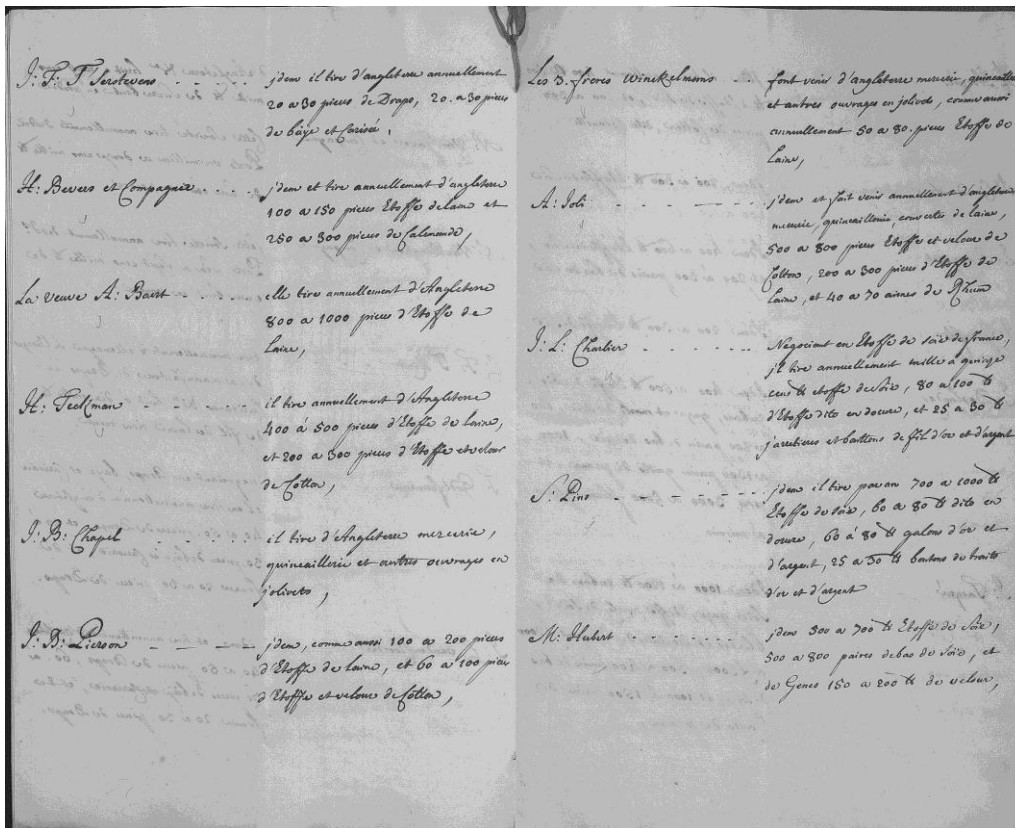 J: F: T'Serstevens - - - - jdem il tire d'angleterre annuellement
20 a 30 pieces de Draps, 20. a 30 pieces
de baÿe et Carisée,
H: Bevers et Compagnie . . . . jdem et tire annuellement d'angleterre
100 a 150 pieces Etoffe de laine et
250 a 300 pieces de Calemande,
La veuve A: Baert . . . . elle tire annuellement d'Angleterre
800 a 1000 pieces d'Etoffe de
Laine,
H: Teckman - - - - - il tire annuellement d'Angleterre
400 á 500 pieces d'Etoffe de Laine,
et 200 a 300 pieces d'Etoffe et velour
de Cotton,
J: B: Chapel il tire d'Angleterre mercerie,
quincaillerie et autres ouvrages en
jolivets,
J: B: Pierson - - - - jdem, comme aussi 100 a 200 pieces
d'Etoffe de Laine, et 60 a 100 pieces
d'Etoffe et velour de Cotton,
Les 3. freres Winckelmans - - font venir d'angleterre mercerie, quincaille
et autres ouvrages en jolivets, comme aussi
annuellement 50 a 80. pieces Etoffe de
Laine,
A: Joli . - - - - - jdem et fait venir annuellement d'angleterre
mercerie, quincaillerie, convertes de laine,
500 a 800 pieces Etoffe et velour de
Cotton, 200 a 300 pieces d'Etoffe de
Laine, et 40 a 70 aimes de Rhum
J: L: Charlier . . . . . . Negociant en Etoffe de soie de france,
jl tire annuellement mille a quinze
cent tt etoffe de Soie, 80 a 100 tt
d'Etoffe dite en dorure, et 25 a 30 tt
jarretieres et bouttons de fil d'or et d'argent
S: Pins - - - - - - jdem il tire par an 700 a 1000 tt
Etoffe de soie, 60 a 80 tt dite en
dorure, 60 á 80 tt galons d'or et
d'argent, 25 a 30 tt boutons de traits
d'or et d'argent
M: Hubert - . . . . . jdem 300 a 700 tt Etoffe de Soie,
500 a 800 paires de bas de Soie, et
de Genes 150 a 200 tt de velour,